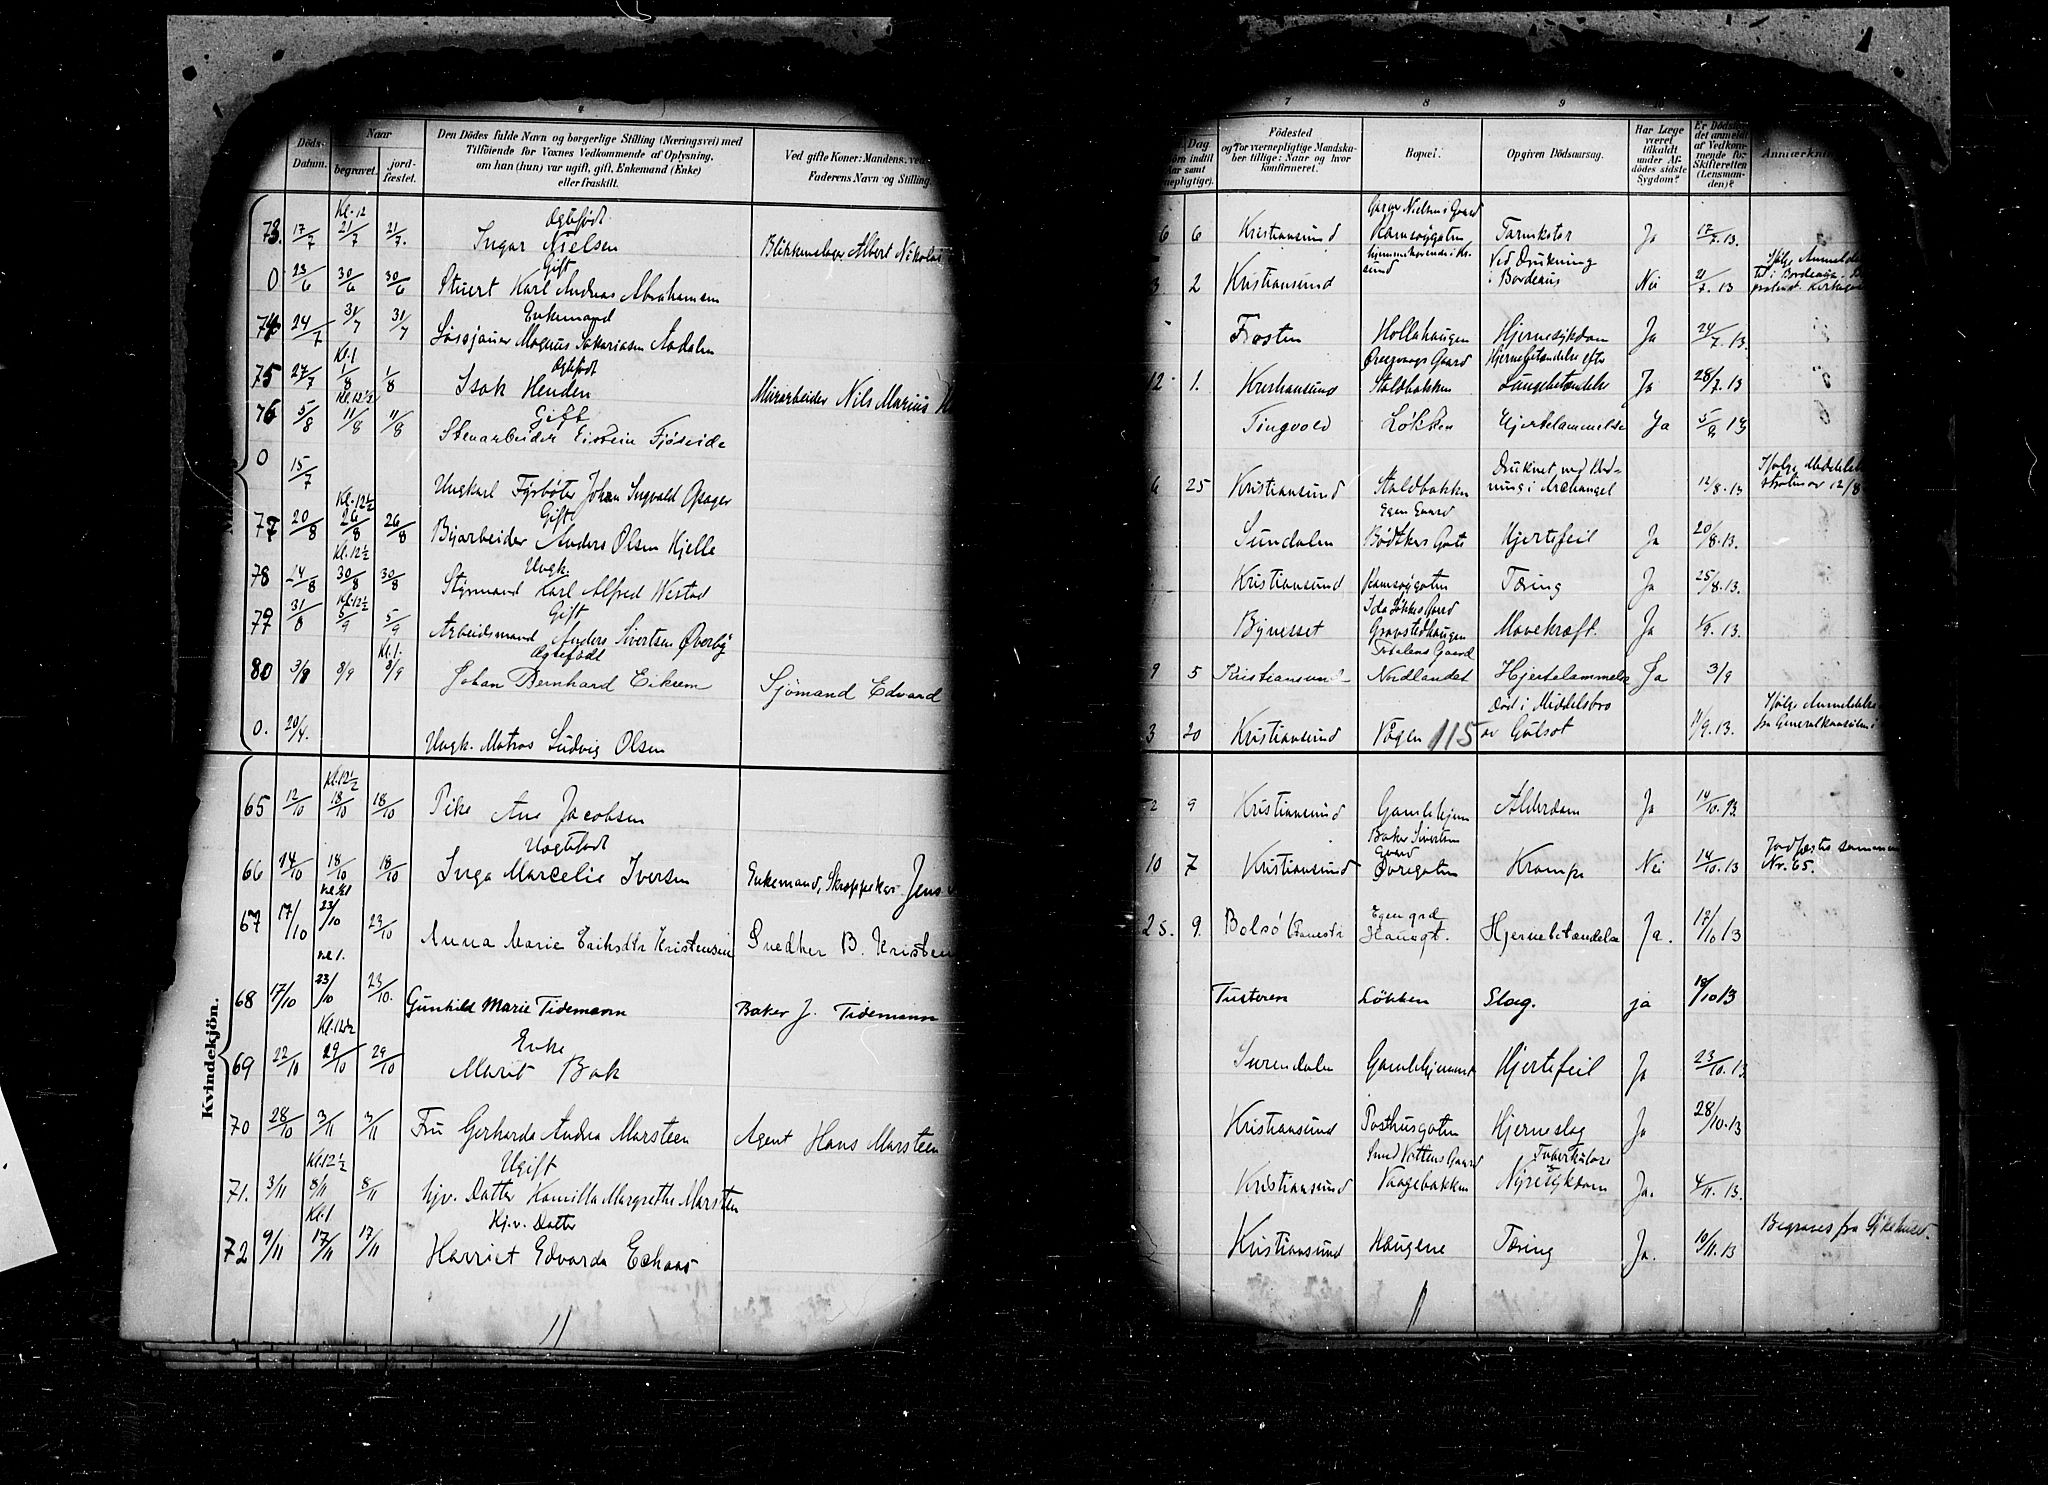 4
Döds-
Datum.
Naar
begravet.
jord-
fæstet.
Den Dödes fulde Navn og borgerlige Stilling (Næringsvei) med
Tilföiende for Voxnes Vedkommende af Oplysning,
om han (hun) var ugift, gift, Enkemand (Enke)
eller fraskilt.
Ved gifte Koner: Mandens, ved
Faderens Navn og Stilling.
73. 17/7 Kl. 12 21/7 21/7. Ægtefødt Ingar Nielsen Blikkenslager Albert Nikolai
0 23/6 30/6 30/6 Gift Stuert Karl Andreas Abrahamsen
74 24/7 31/7 31/7 Enkemand Magnus Sakariasen Aadalen
75 27/7 Kl. 1 1/8 1/8 Ægtefødt Isak Henden Murarbeider Nils Marius
76 5/8 Kl. 12½ 11/8 11/8 Gift Stenarbeider Eistein Fjøseide
0 15/7 Ungkarl Fyrbøter Johan Ingvald Opsager
77 20/8 Kl. 12½ 26/8 26/8 Gift Byarbeider Anders Olsen Kjelle
78 14/8 Kl. 12½ 30/8 30/8 Ungk. Styrmand Karl Alfred Westad
79 31/8 Kl. 12½ 5/9 5/9 Gift Arbeidsmand Anders Sivertsen Øverby
80 3/8 8/9 Kl. 1. 8/9 Ægtefødt Johan Bernhard Eiksem Sjömand Edvard
0. 20/4. Ungk. Matros Ludvig Olsen
Kvindekjön.
65 12/10 Kl. 12½ 18/10 18/10 Pike Ane Jacobsen
66 14/10 18/10 18/10 Uægtefødt Inga Marcelie Iversen Enkemand, Jens
67 17/10 23/10 23/10 Anna Marie Eriksdtr Kristensen Snedker B. Kristen
68 17/10 kl. 1. 23/10 23/10. Gunhild Marie Tidemann Baker J. Tidemann
69 22/10 Kl. 12½ 29/10 29/10 Enke Marit Bak
70 28/10 3/11 3/11 Fru Gerharda Andrea Marsteen Agent Hans Marsteen
71. 3/11 Kl. 12½ 8/11 8/11 Ugift hjv. Datter Kamilla Margrethe Marsteen
72 9/11 Kl. 1 17/11 17/11 Hj. v. Datter Harriet Edvarda Echaas
7
8
9
Dag
Födested
og for værnepligtige Mandska-
ber tillige: Naar og hvor
konfirmeret.
Bopæl.
Opgiven Dödsaarsag.
Har Læge
været
tilkaldt
under Af-
dödes sidste
Sygdom?
Er Dödsfal-
det anmeldt
af Vedkom-
mende for
Skifteretten
(Lensman-
den)?
Anmærkning
6 6 Kristiansund Nielsens Gaard Ramsøygaten Tarmkatar Ja 17/7.13.
3 2 Kristiansund hjemmehørende i Kr.sund Ved Drukning i Bordeaux Nei 21/7.13 Ifølge Anmeldelse
Frosten Hollahaugen Hjernesykdom Ja 24/7.13
12 1. Kristiansund Gaard Staldbakken Hjernebetændelse efter Lungebetændelse Ja 28/7.13
Tingvold Løkken Hjertelammelse Ja 5/8 13
6 25 Kristiansund Staldbakken Druknet ved i Archangel 12/8.13 12/8
Sundalen Egen Gaard Bødtkers Gate Hjertefeil Ja 20/8.13.
Kristiansund Ramsøygaten Tæring Ja 25/8.13.
Bynesset Ida Løkkes Gaard Gravstedhaugen Mavekræft. Ja 1/9.13.
9 5 Kristiansund Gaard Nordlandet Hjertelammelse Ja 3/9
3 20 Kristiansund Vågen 115 Død i Middelsbro av Gulsot 11/9.13. Ifølge Anmeldelse fra Generalkonsulen i
9 Kristiansund Gamlehjem Alderdom Ja 14/10.13
10 7 Kristiansund Baker Sivertsens Gaard Øvregaten Krampe Nei 14/10.13 Jordfæstes sammen Nr. 65.
25. 9. Bolsö Egen grd Haugt. Hjernebetændelse Ja. 17/10 13
Tusteren Løkken Slag. ja 18/10 13
Surendalen Gamlehjemmet Hjertefeil Ja 23/10.13.
Kristiansund Posthusgaten Hjerneslag Ja 28/10.13
Kristiansund Gaard Vaagebakken Tuberkuløse Nyresykdom Ja. 4/11.13.
Kristiansund Haugene Tæring Ja. 10/11.13 Begraves fra Sykehuset.